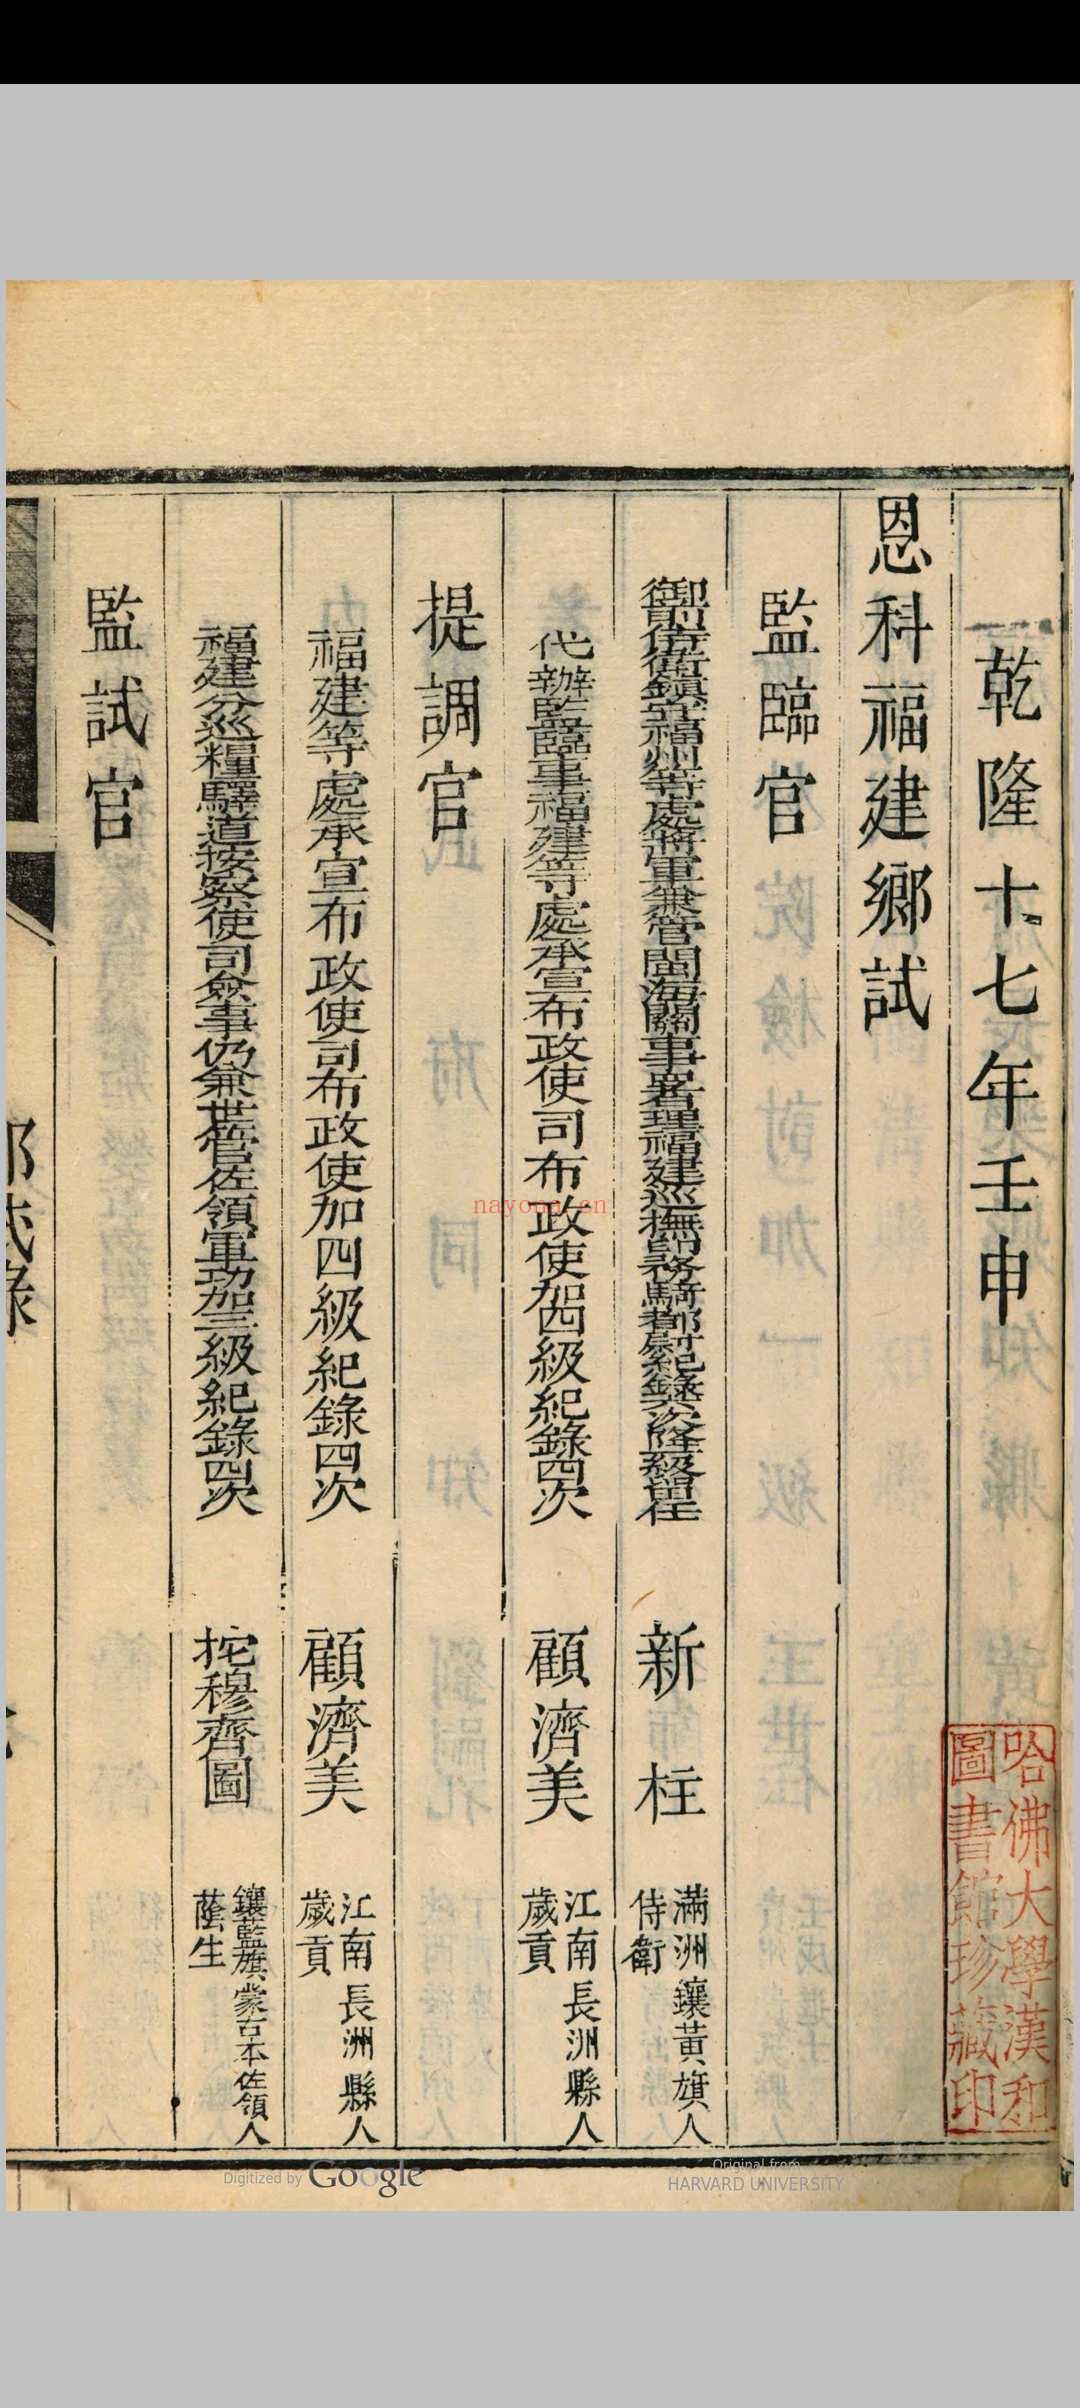 乾隆十七年壬申
恩科福建鄉試
監臨官
御前侍衛鎮守福州等處將軍兼管閩海關事署理福建巡撫印務騎都尉紀錄六次降級留任
新柱
滿洲鑲黃旗人
侍衛
代辦監臨事福建等處承宣布政使司布政使加四級紀錄四次
顧濟美
江南長洲縣人
歲貢
提調官
福建等處承宣布政使司布政使加四級紀錄四次
顧濟美
江南長洲縣人
歲貢
福建分巡糧驛道按察使司僉事仍兼世管佐領軍功加三級紀錄四次
拕穆齊圖
鑲藍旗蒙古本佐領人
蔭生
監試官
哈佛大學漢和
圖書館珍藏印
nayona.cn
Digitized by Google
Original from
HARVARD UNIVERSITY